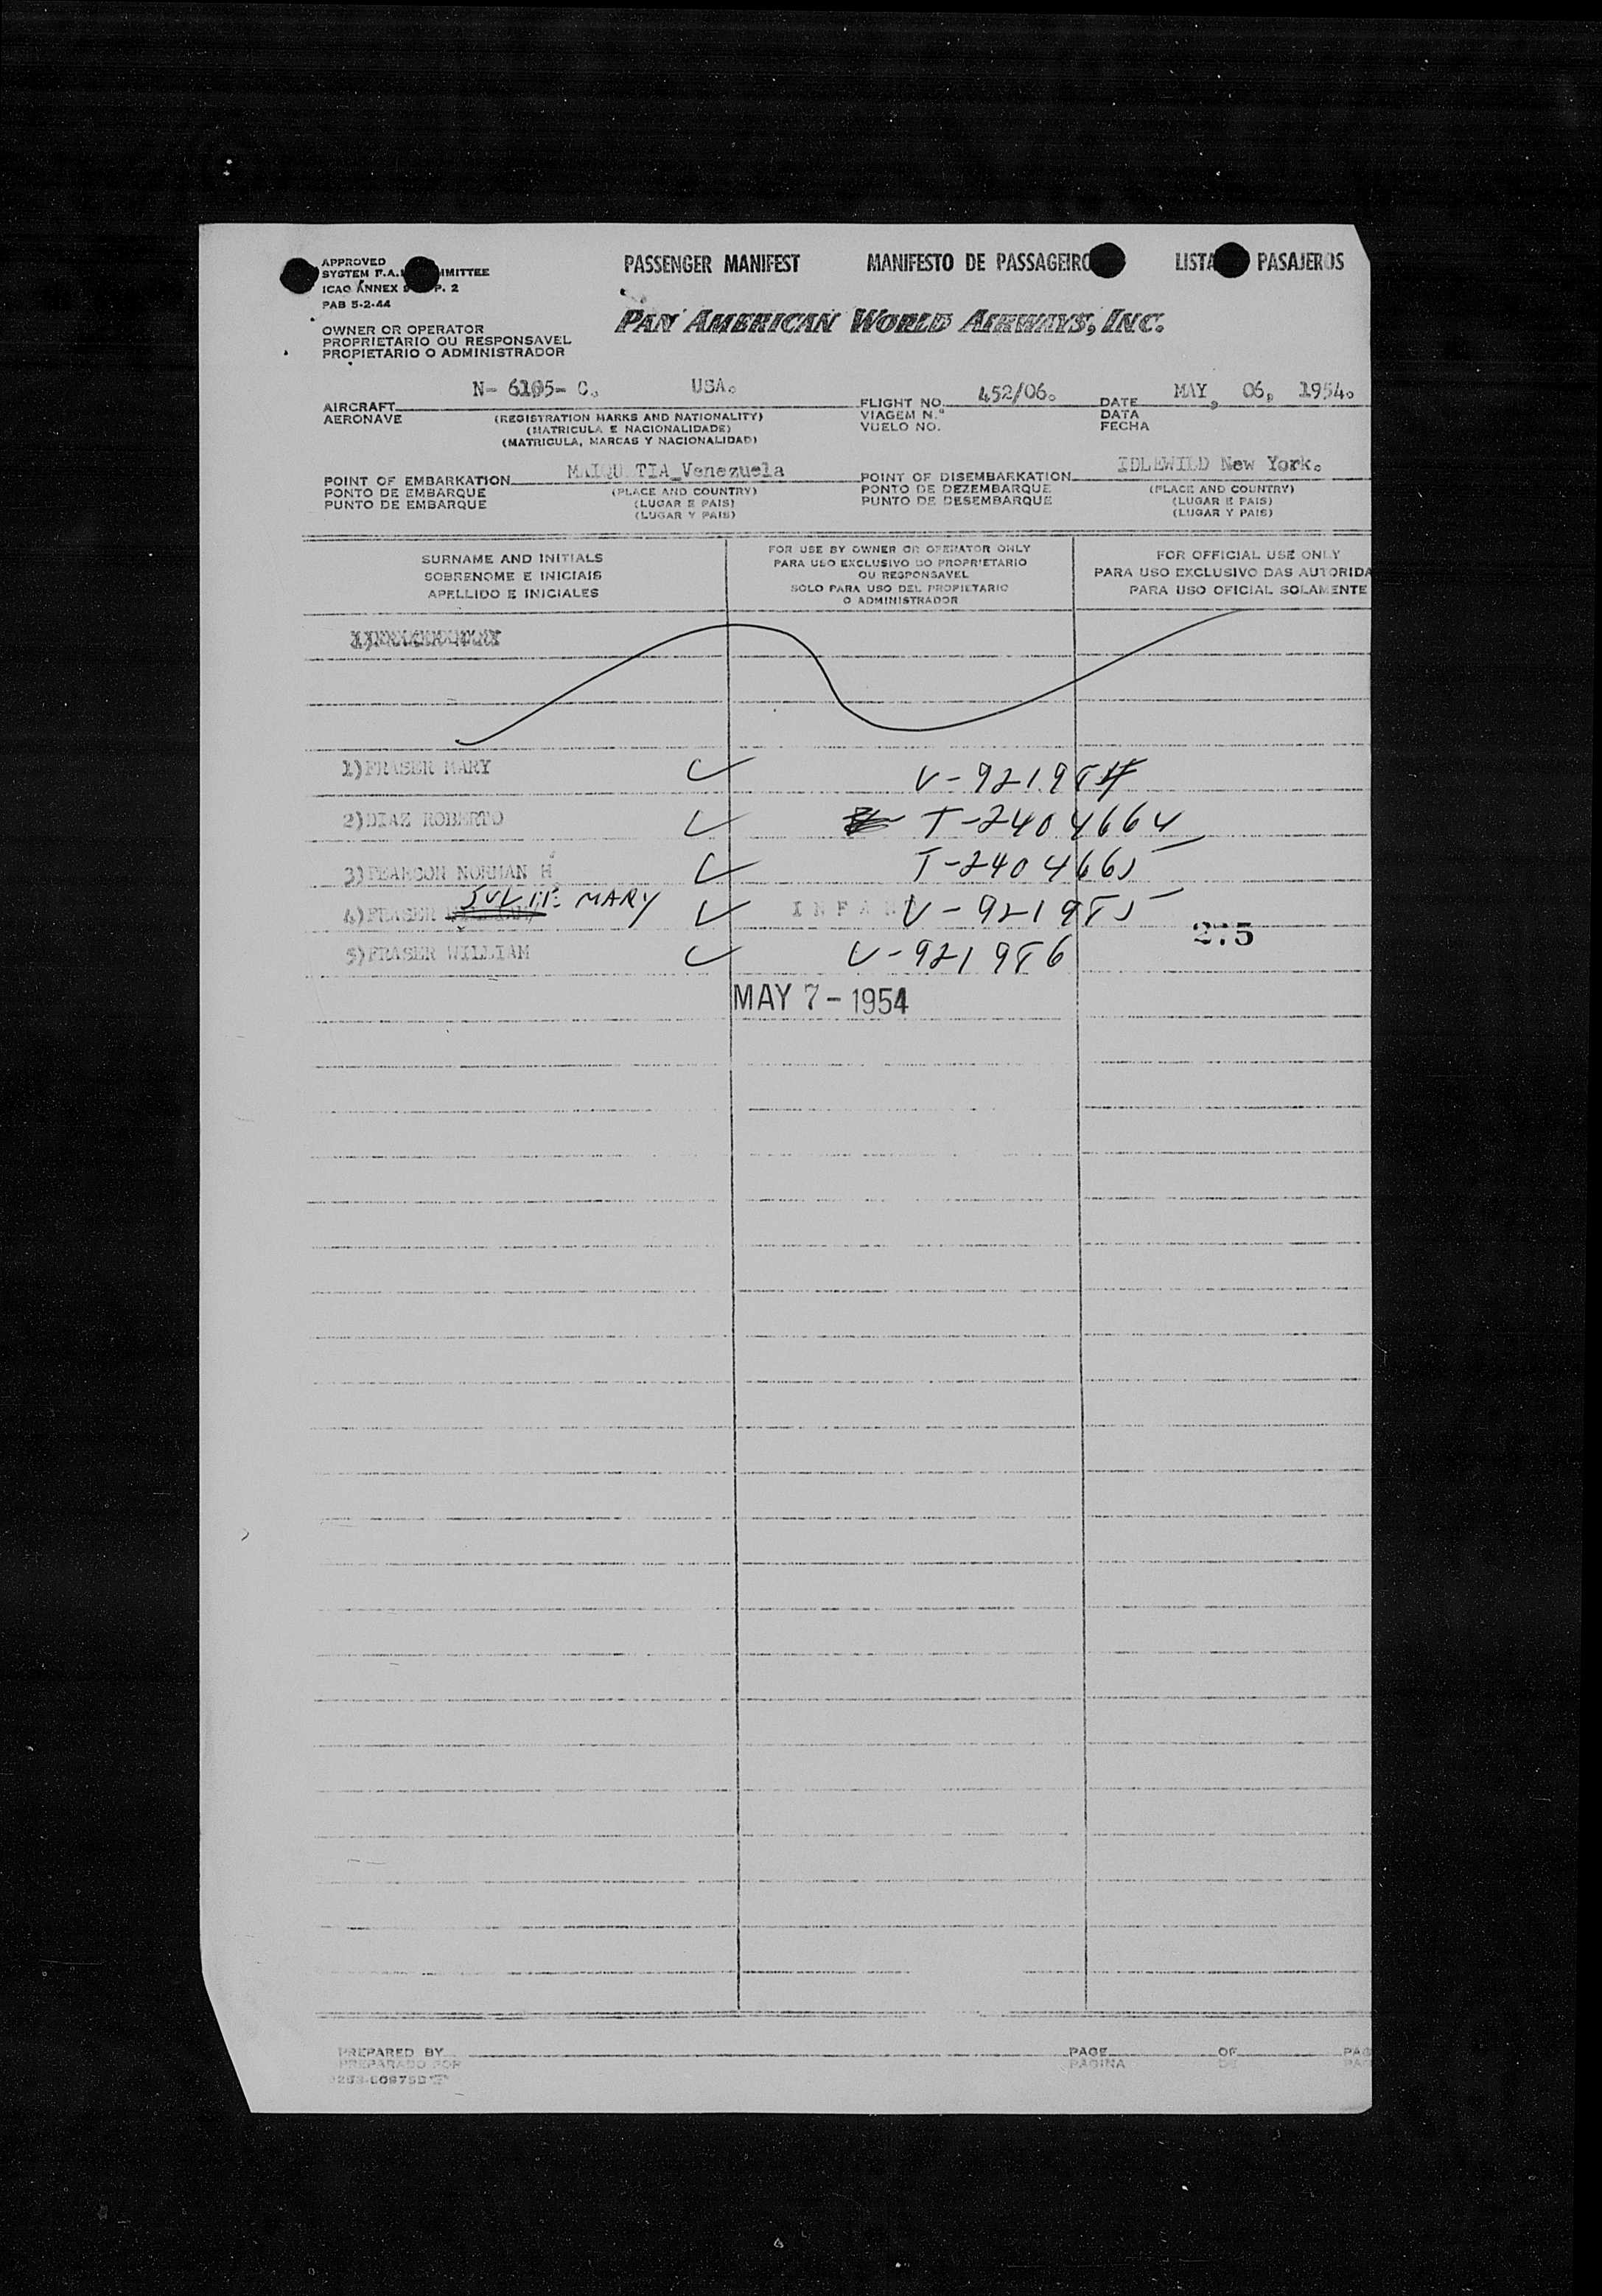 PASSENGER MANIFEST MANIFESTO DE PASSAGEIRO LISTA PASAJEROS
APPROVED
SYSTEM F.A. MMITTEE
ICAO ANNEX P. 2
PAB 5-2-44
PAN AMERICAN WORLD AIRWAYS, INC.
OWNER OR OPERATOR
PROPRIETARIO OU RESPONSAVEL
PROPIETARIO O ADMINISTRADOR
AIRCRAFT N- 6105- C. USA. FLIGHT NO. 452/06. DATE MAY, 06, 1954.
AERONAVE (REGISTRATION MARKS AND NATIONALITY) VIAGEM N.º DATA
(MATRICULA E NACIONALIDADE) VUELO NO. FECHA
(MATRICULA, MARCAS Y NACIONALIDAD)
POINT OF EMBARKATION MAIQU TIA_Venezuela POINT OF DISEMBARKATION IDLEWILD New York.
PONTO DE EMBARQUE (PLACE AND COUNTRY) PONTO DE DEZEMBARQUE (PLACE AND COUNTRY)
PUNTO DE EMBARQUE (LUGAR E PAIS) PUNTO DE DESEMBARQUE (LUGAR E PAIS)
(LUGAR Y PAIS) (LUGAR Y PAIS)
SURNAME AND INITIALS
SOBRENOME E INICIAIS
APELLIDO E INICIALES
FOR USE BY OWNER OR OPERATOR ONLY
PARA USO EXCLUSIVO DO PROPRIETARIO
OU RESPONSAVEL
SOLO PARA USO DEL PROPIETARIO
O ADMINISTRADOR
FOR OFFICIAL USE ONLY
PARA USO EXCLUSIVO DAS AUTORIDA
PARA USO OFICIAL SOLAMENTE
1)FRASER MARY V-921984
2)DIAZ ROBERTO T-2404664
3)PEARSON NORMAN H T-2404665
4)FRASER JULIE MARY INFAN V-921985
275
5)FRASER WILLIAM V-921986
MAY 7 - 1954
PREPARED BY PAGE OF PAG
PREPARADO POR PAGINA DE PAG